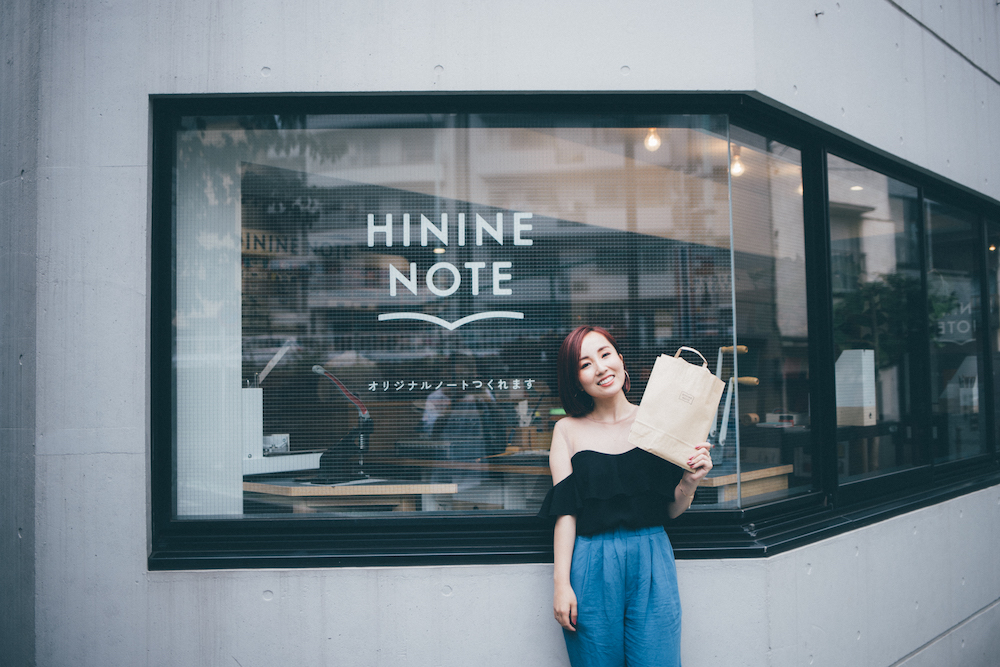 HININE
NOTE
オリジナルノートつくれます
ININE
NOTE